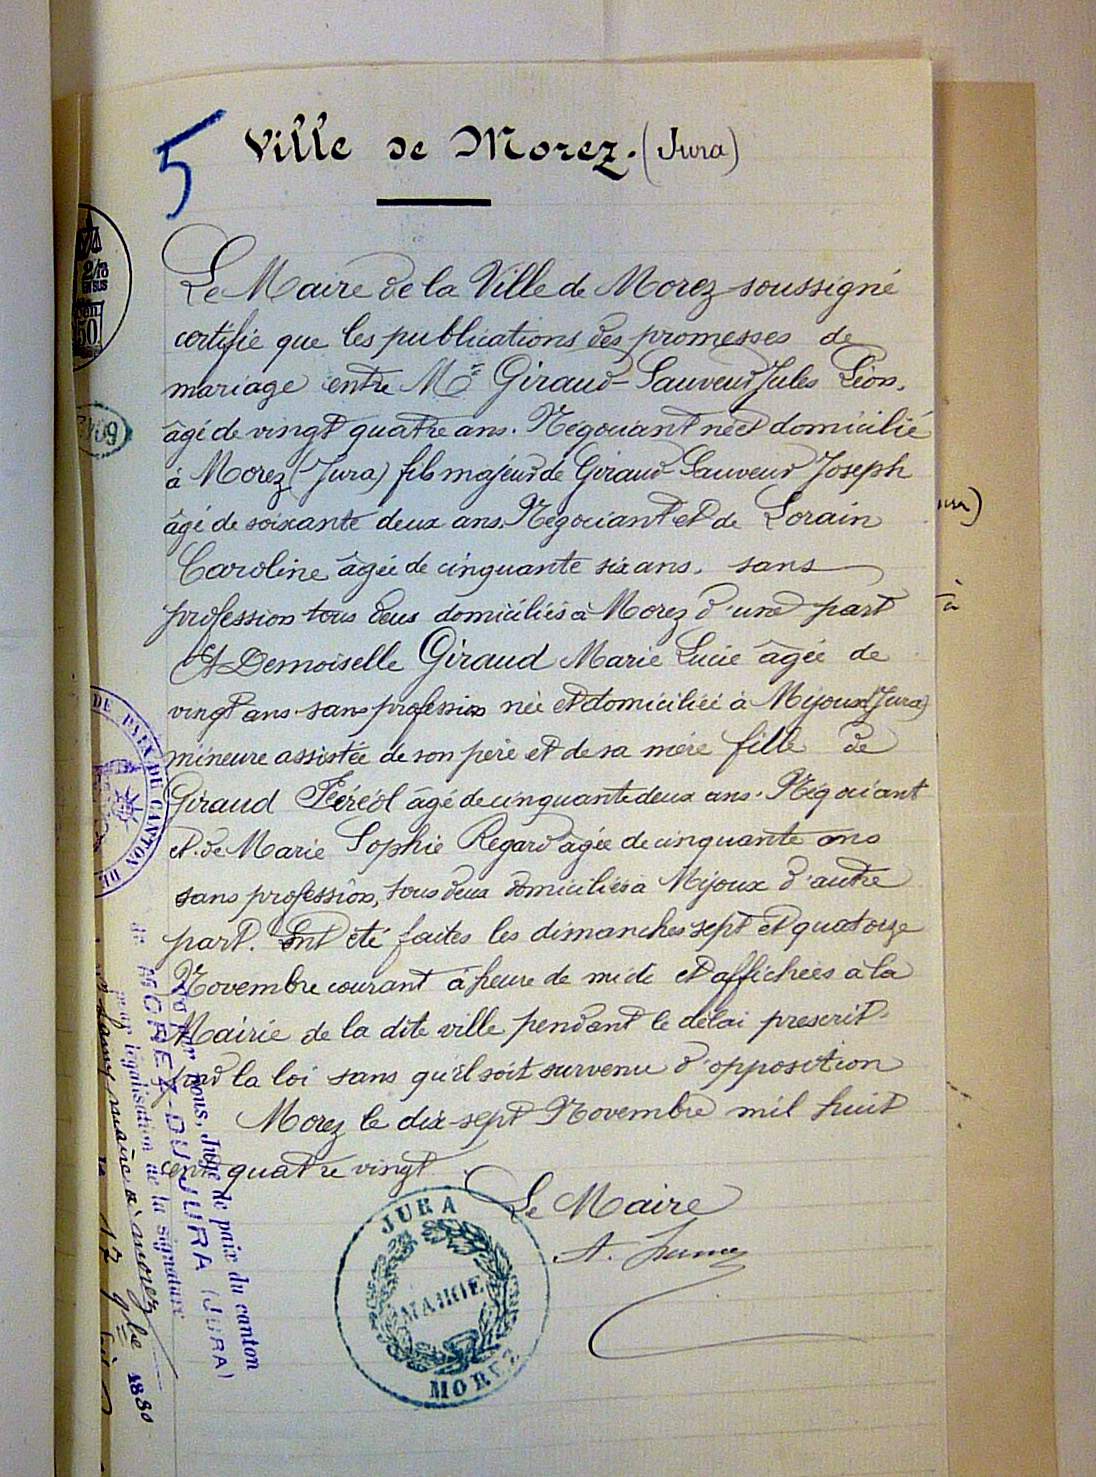 5
Ville de Morez. (Jura)
Le Maire de la Ville de Morez soussigné
certifie que les publications des promesses de
mariage entre Mr Giraud-Sauveur Jules Léon.
âgé de vingt quatre ans. Négociant né et domicilié
à Morez (Jura) fils majeur de Giraud Sauveur Joseph
âgé de soixante deux ans. Négociant et de Lorain
Caroline âgée de cinquante six ans. sans
profession tous deux domiciliés à Morez d'une part
Et Demoiselle Giraud Marie Lucie âgée de
vingt ans. sans profession née et domiciliée à Mijoux (Jura)
mineure assistée de son père et de sa mère fille de
Giraud Féréol âgé de cinquante deux ans. Négociant
et de Marie Sophie Regard âgée de cinquante ans
sans profession, tous deux domiciliés à Mijoux d'autre
part. Ont été faites les dimanches sept et quatorze
Novembre courant à heure de midi et affichées à la
Mairie de la dite ville pendant le délai prescrit
par la loi sans qu'il soit survenu d'opposition
Morez le dix-sept Novembre mil huit
cent quatre vingt
Le Maire
JURA
MAIRIE
MOREZ
DE PAIX DU CANTON DE
Vu par nous, Juge de paix du canton
de MOREZ-DU-JURA (JURA)
pour légalisation de la signature
maire à Morez
17 9bre 1880